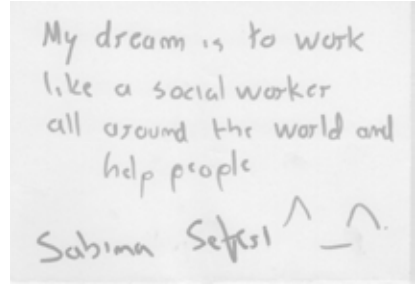 My dream is to work
like a social worker
all around the world and
help people
Sabina ^_^